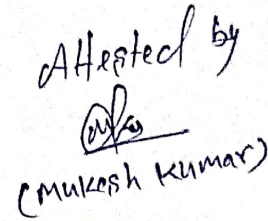 Attested by
(Mukesh Kumar)